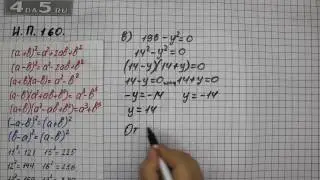 4DA5.RU
Н.П. 160.
(a+b)²=a²+2ab+b²
(a-b)²=a²-2ab+b²
(a+b)(a-b)=a²-b²
(a-b)(a²+ab+b²)=a³-b³
(a+b)(a²-ab+b²)=a³+b³
(-a-b)²=(a+b)²
(b-a)²=(a-b)²
11²=121 15²=225
12²=144 16²=256
в) 196-y²=0
14²-y²=0
(14-y)(14+y)=0
14-y=0 или 14+y=0
-y=-14 y=-14
y=14
От